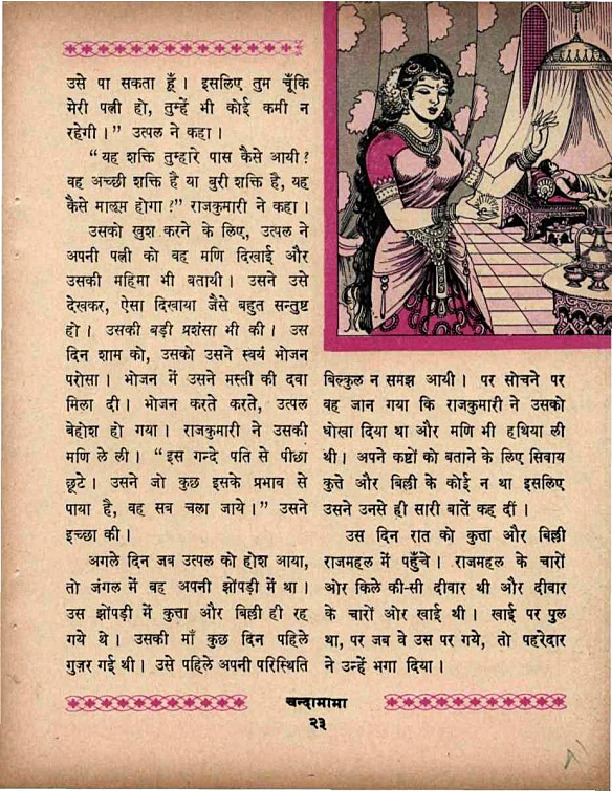 उसे पा सकता हूँ। इसलिए तुम चूँकि
मेरी पत्नी हो, तुम्हें भी कोई कमी न
रहेगी।" उत्पल ने कहा।
"यह शक्ति तुम्हारे पास कैसे आयी?
वह अच्छी शक्ति है या बुरी शक्ति है, यह
कैसे मालूम होगा?" राजकुमारी ने कहा।
उसको खुश करने के लिए, उत्पल ने
अपनी पत्नी को वह मणि दिखाई और
उसकी महिमा भी बतायी। उसने उसे
देखकर, ऐसा दिखाया जैसे बहुत सन्तुष्ट
हो। उसकी बड़ी प्रशंसा भी की। उस
दिन शाम को, उसको उसने स्वयं भोजन
परोसा। भोजन में उसने मस्ती की दवा
मिला दी। भोजन करते करते, उत्पल
बेहोश हो गया। राजकुमारी ने उसकी
मणि ले ली। "इस गन्दे पति से पीछा
छूटे। उसने जो कुछ इसके प्रभाव से
पाया है, वह सब चला जाये।" उसने
इच्छा की।
अगले दिन जब उत्पल को होश आया,
तो जंगल में वह अपनी झोंपड़ी में था।
उस झोंपड़ी में कुत्ता और बिल्ली ही रह
गये थे। उसकी माँ कुछ दिन पहिले
गुज़र गई थी। उसे पहिले अपनी परिस्थिति
बिल्कुल न समझ आयी। पर सोचने पर
वह जान गया कि राजकुमारी ने उसको
धोखा दिया था और मणि भी हथिया ली
थी। अपने कष्टों को बताने के लिए सिवाय
कुत्ते और बिल्ली के कोई न था इसलिए
उसने उनसे ही सारी बातें कह दीं।
उस दिन रात को कुत्ता और बिल्ली
राजमहल में पहुँचे। राजमहल के चारों
ओर किले की-सी दीवार थी और दीवार
के चारों ओर खाई थी। खाई पर पुल
था, पर जब वे उस पर गये, तो पहरेदार
ने उन्हें भगा दिया।
चन्दामामा
२३